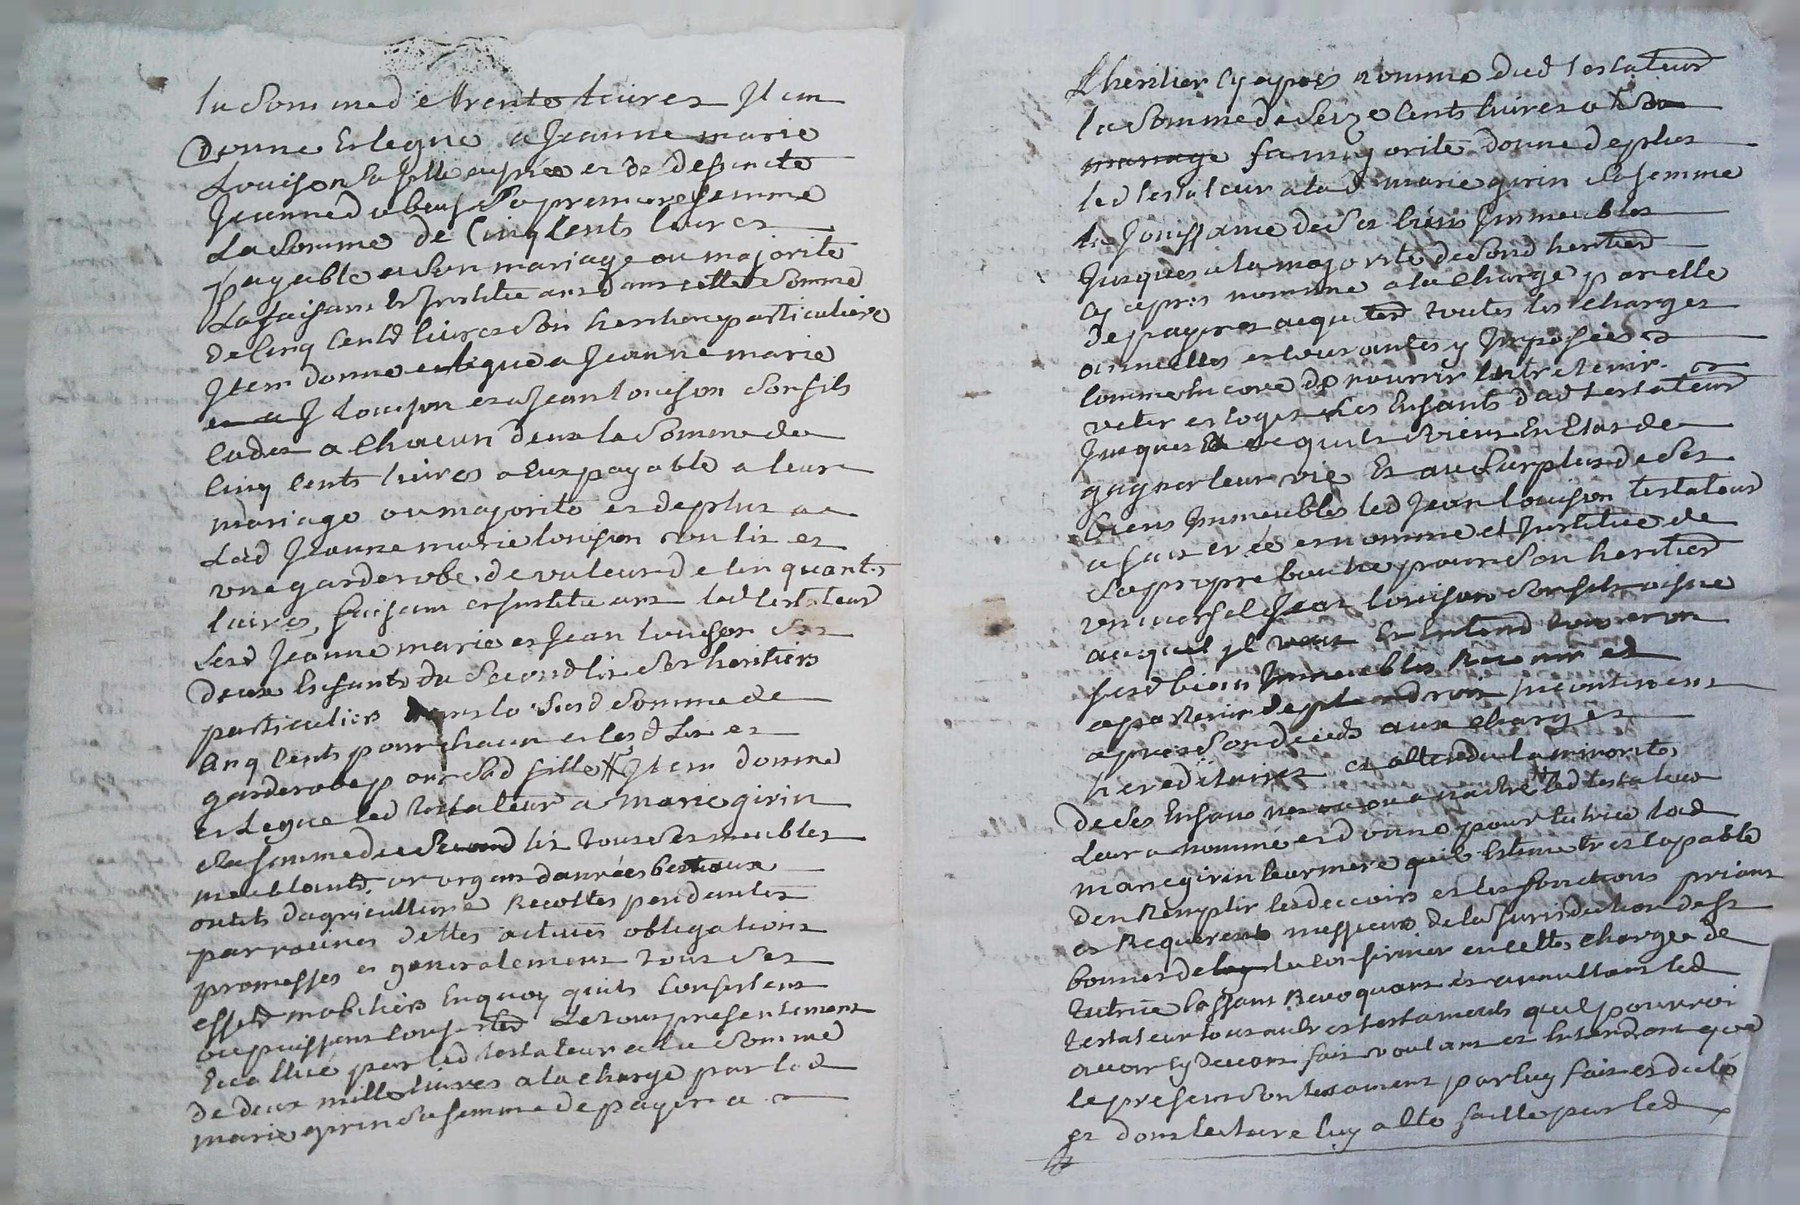 la somme de trente livres Item
donne et legue a Jeanne marie
Louison sa fille et de deffuncte
Jeanne sa premiere femme
La somme de Cinq Cents livres
payable a son mariage ou majorité
La faisant et Instituant dans cette somme
de Cinq Cents livres son heritiere particuliere
Item donne et legue a Jeanne marie
Louison et a Jean louison son fils
cadet a chacun deux la somme de
Cinq Cents livres a Eux payable a leur
mariage ou majorité et de plus a
Lad Jeanne marie louison son lit et
une garderobe de valeur de Cinquante
livres, faisant et Instituant led testateur
Lesd Jeanne marie et Jean louison ses
deux Enfants du second lit ses heritiers
particuliers dans la susd somme de
Cinq Cents pour chacun et lesd Lit et
garderobe pour sad fille Item donne
et Legue led testateur a marie girin
sa femme du second lit tous ses meubles
meublants danrées bestiaux
outils dagriculture Recoltes pendantes
par racines dettes actives obligations
promesses et generalement tous ses
effets mobiliers En quoy quils Consistent
ou puissent Consister Le tout presentement
Evallué par led testateur a la somme
de deux mille livres a la charge par lad
marie girin sa femme de payer a
Lheritier Cy apres nommé dud testateur
la somme de seize Cents livres a sa
mariage sa majorité donne de plus
led testateur a lad marie girin sa femme
la Jouissance de ses biens Immeubles
Jusques a la majorité de sond heritier
Cy apres nommé a la Charge par elle
de payer et acquiter toutes les charges
annuelles et courantes y Imposées
Comme Encore de nourrir Entretenir
vetir et loger les Enfants dud testateur
Jusques a ce quils soient En Etat de
gagner leur vie Et au surplus de ses
biens Immeubles led Jean louison testateur
a fait créé et nommé et Institué de
sa propre bouche pour son heritier
universel Jean louison son fils aisne
auquel il veut Et Entend
sesd biens Immeubles et
apartenir de plein droit Incontinent
apres son deceds aux charges
hereditaires et attendu la minorité
de ses Enfans led testateur
Leur a nommé et donné pour tutrice lad
marie girin leur mere quil Estime tres Capable
den Remplir les devoirs et les fonctions priant
et Requerant messieurs de la Jurisdiction dest
bonnet de la confirmer en cette charge de
tutrice Cassant Revoquant et annullant led
testateur tous autres testaments quil pourroit
avoir Cy devant fait voulant et Entendant que
le present son testament par luy fait et dicté
et dont lecture luy a été faitte par led